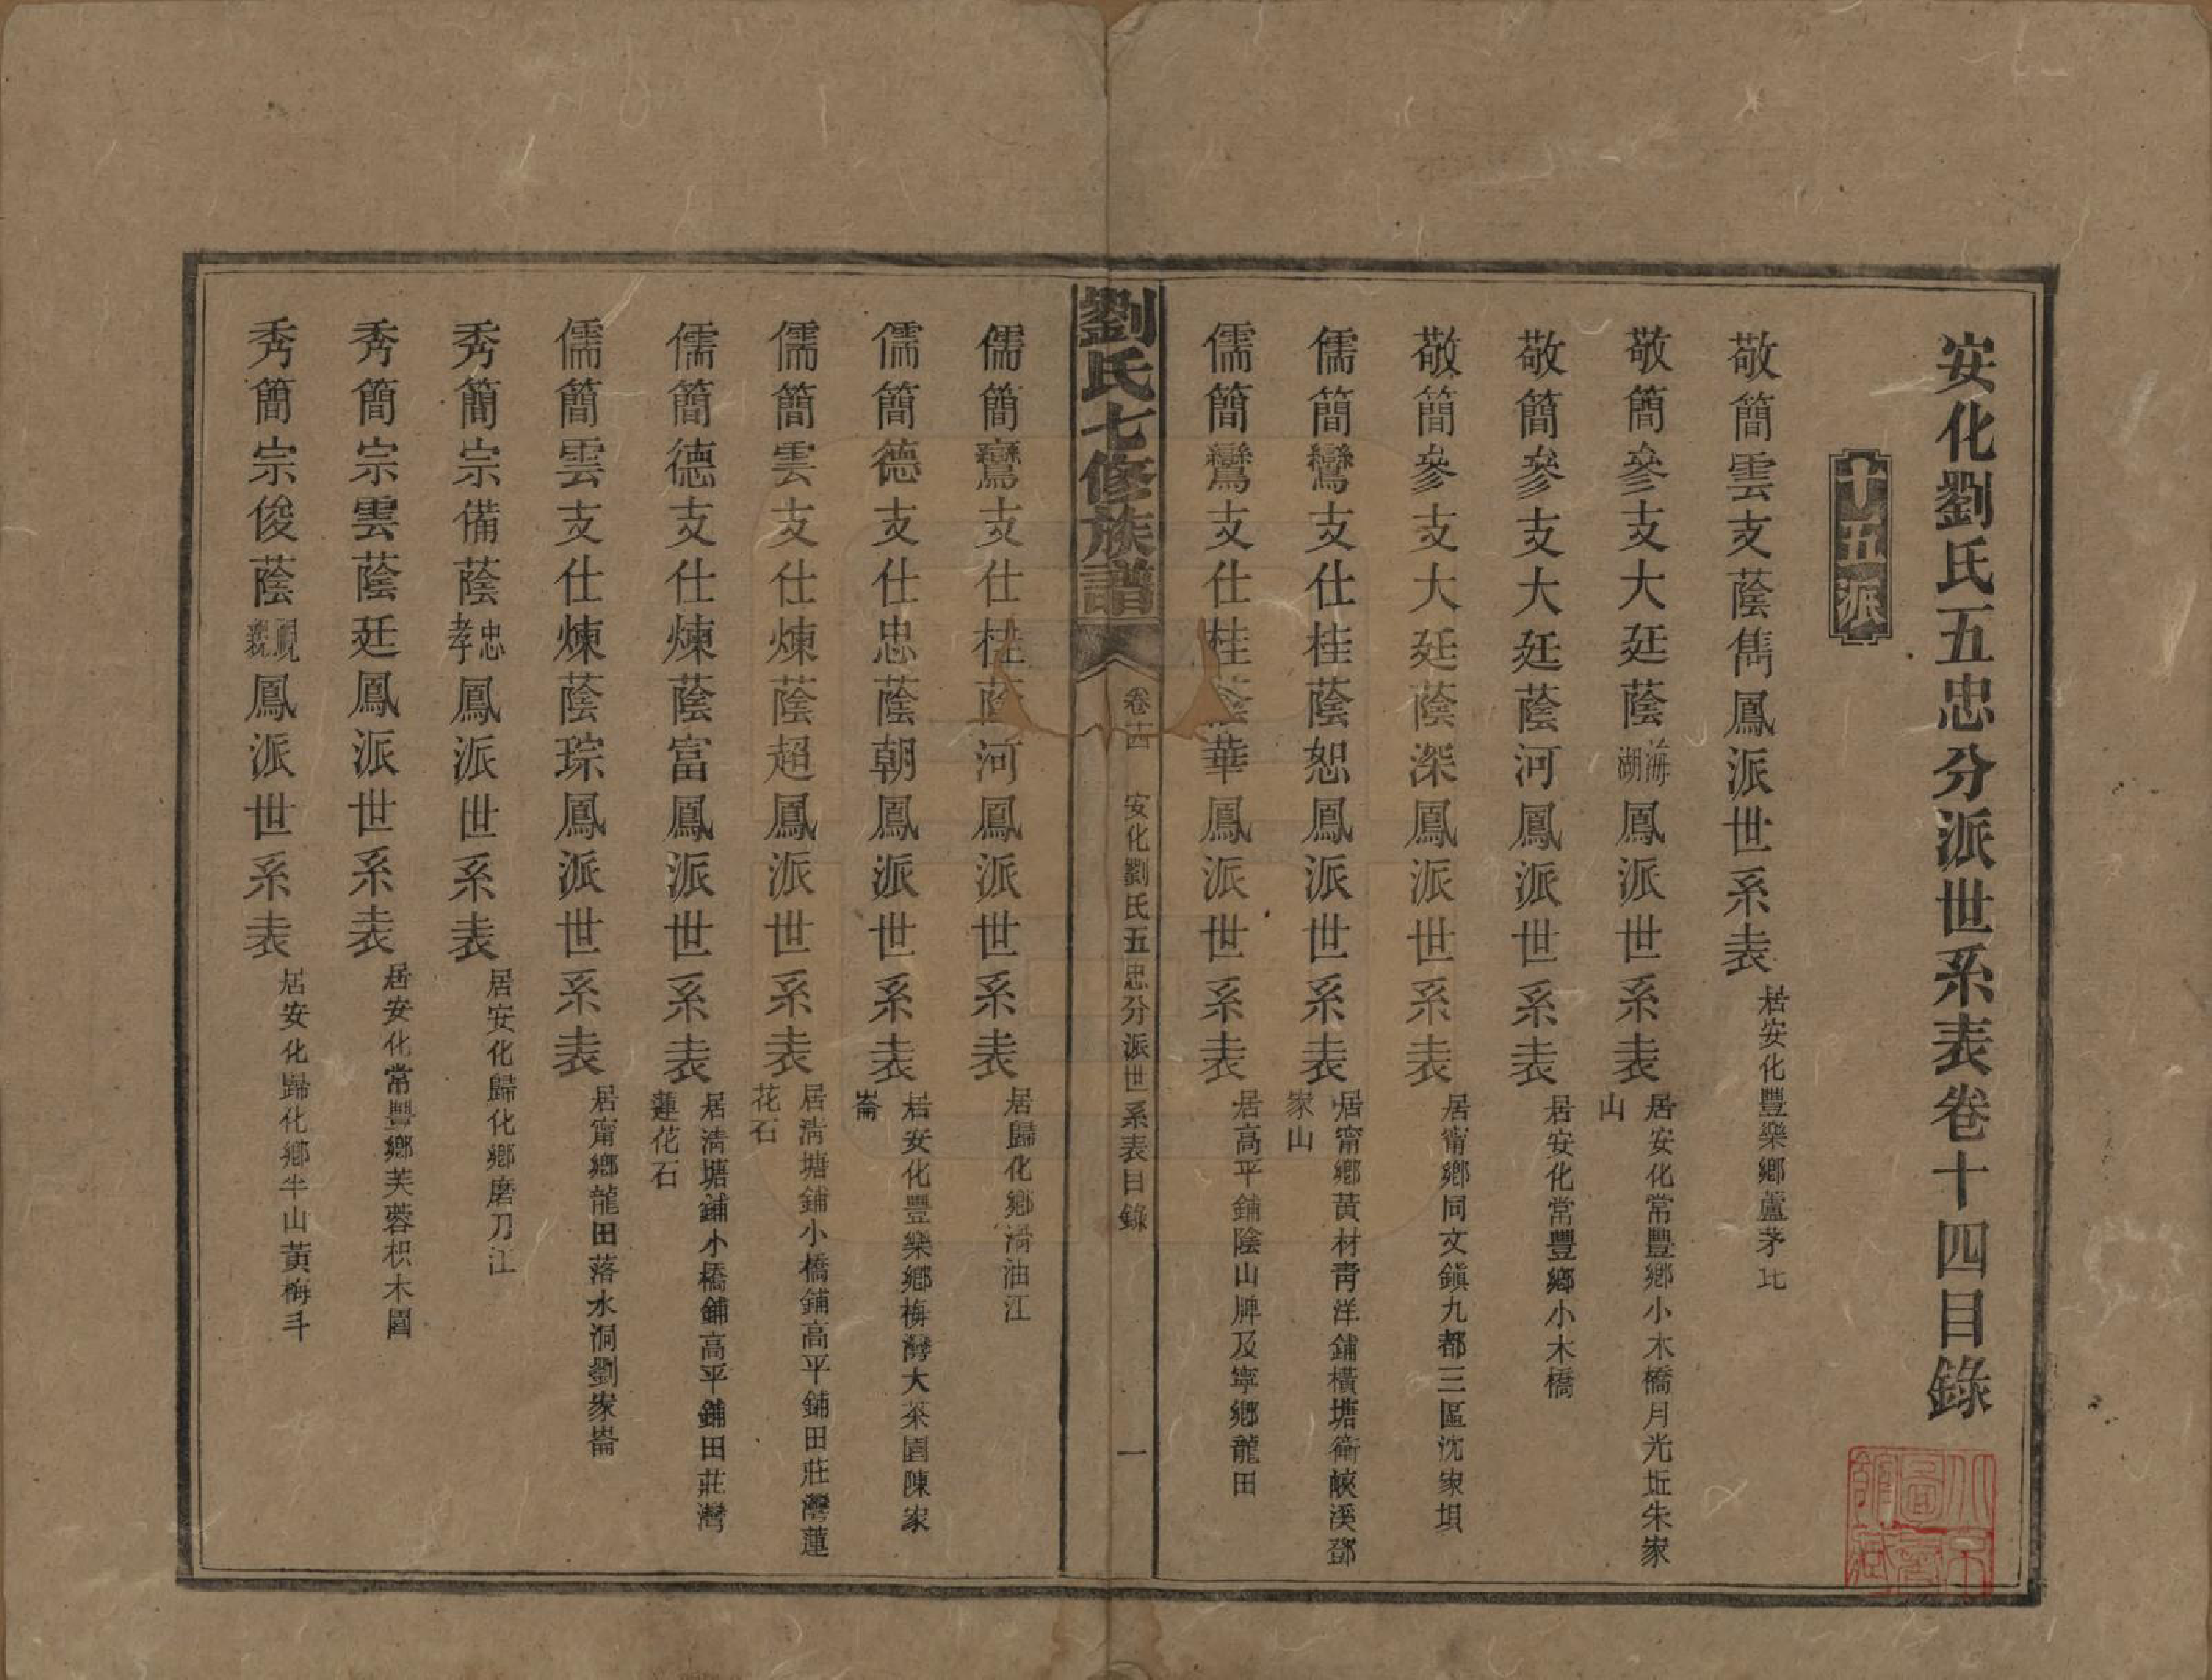 安化劉氏五忠分派世系表卷十四目錄
十五派
敬簡雲支蔭雋鳳派世系表 居安化豐樂鄉蘆茅圵
敬簡參支大廷蔭海湖鳳派世系表 居安化常豐鄉小木橋月光坵朱家山
敬簡參支大廷蔭河鳳派世系表 居安化常豐鄉小木橋
敬簡參支大廷蔭深鳳派世系表 居甯鄉同文鎭九都三區沈家垻
儒簡鸞支仕桂蔭恕鳳派世系表 居甯鄉黃材靑洋鋪橫塘衝峽溪鄧家山
儒簡鸞支仕桂蔭華鳳派世系表 居高平鋪陰山牌及寧鄉龍田
劉氏七修族譜 卷十四 安化劉氏五忠分派世系表目錄 一
儒簡鸞支仕桂蔭河鳳派世系表 居歸化鄉淸油江
儒簡德支仕忠蔭朝鳳派世系表 居安化豐樂鄉梅灣大茶園陳家崙
儒簡雲支仕煉蔭超鳳派世系表 居淸塘鋪小橋鋪高平鋪田莊灣蓮花石
儒簡德支仕煉蔭富鳳派世系表 居淸塘鋪小橋鋪高平鋪田莊灣蓮花石
儒簡雲支仕煉蔭琮鳳派世系表 居甯鄉龍田落水洞劉家崙
秀簡宗備蔭忠孝鳳派世系表 居安化歸化鄉磨刀江
秀簡宗雲蔭廷鳳派世系表 居安化常豐鄉芙蓉枳木園
秀簡宗俊蔭覜親鳳派世系表 居安化歸化鄉半山黃梅斗
北京圖書館藏